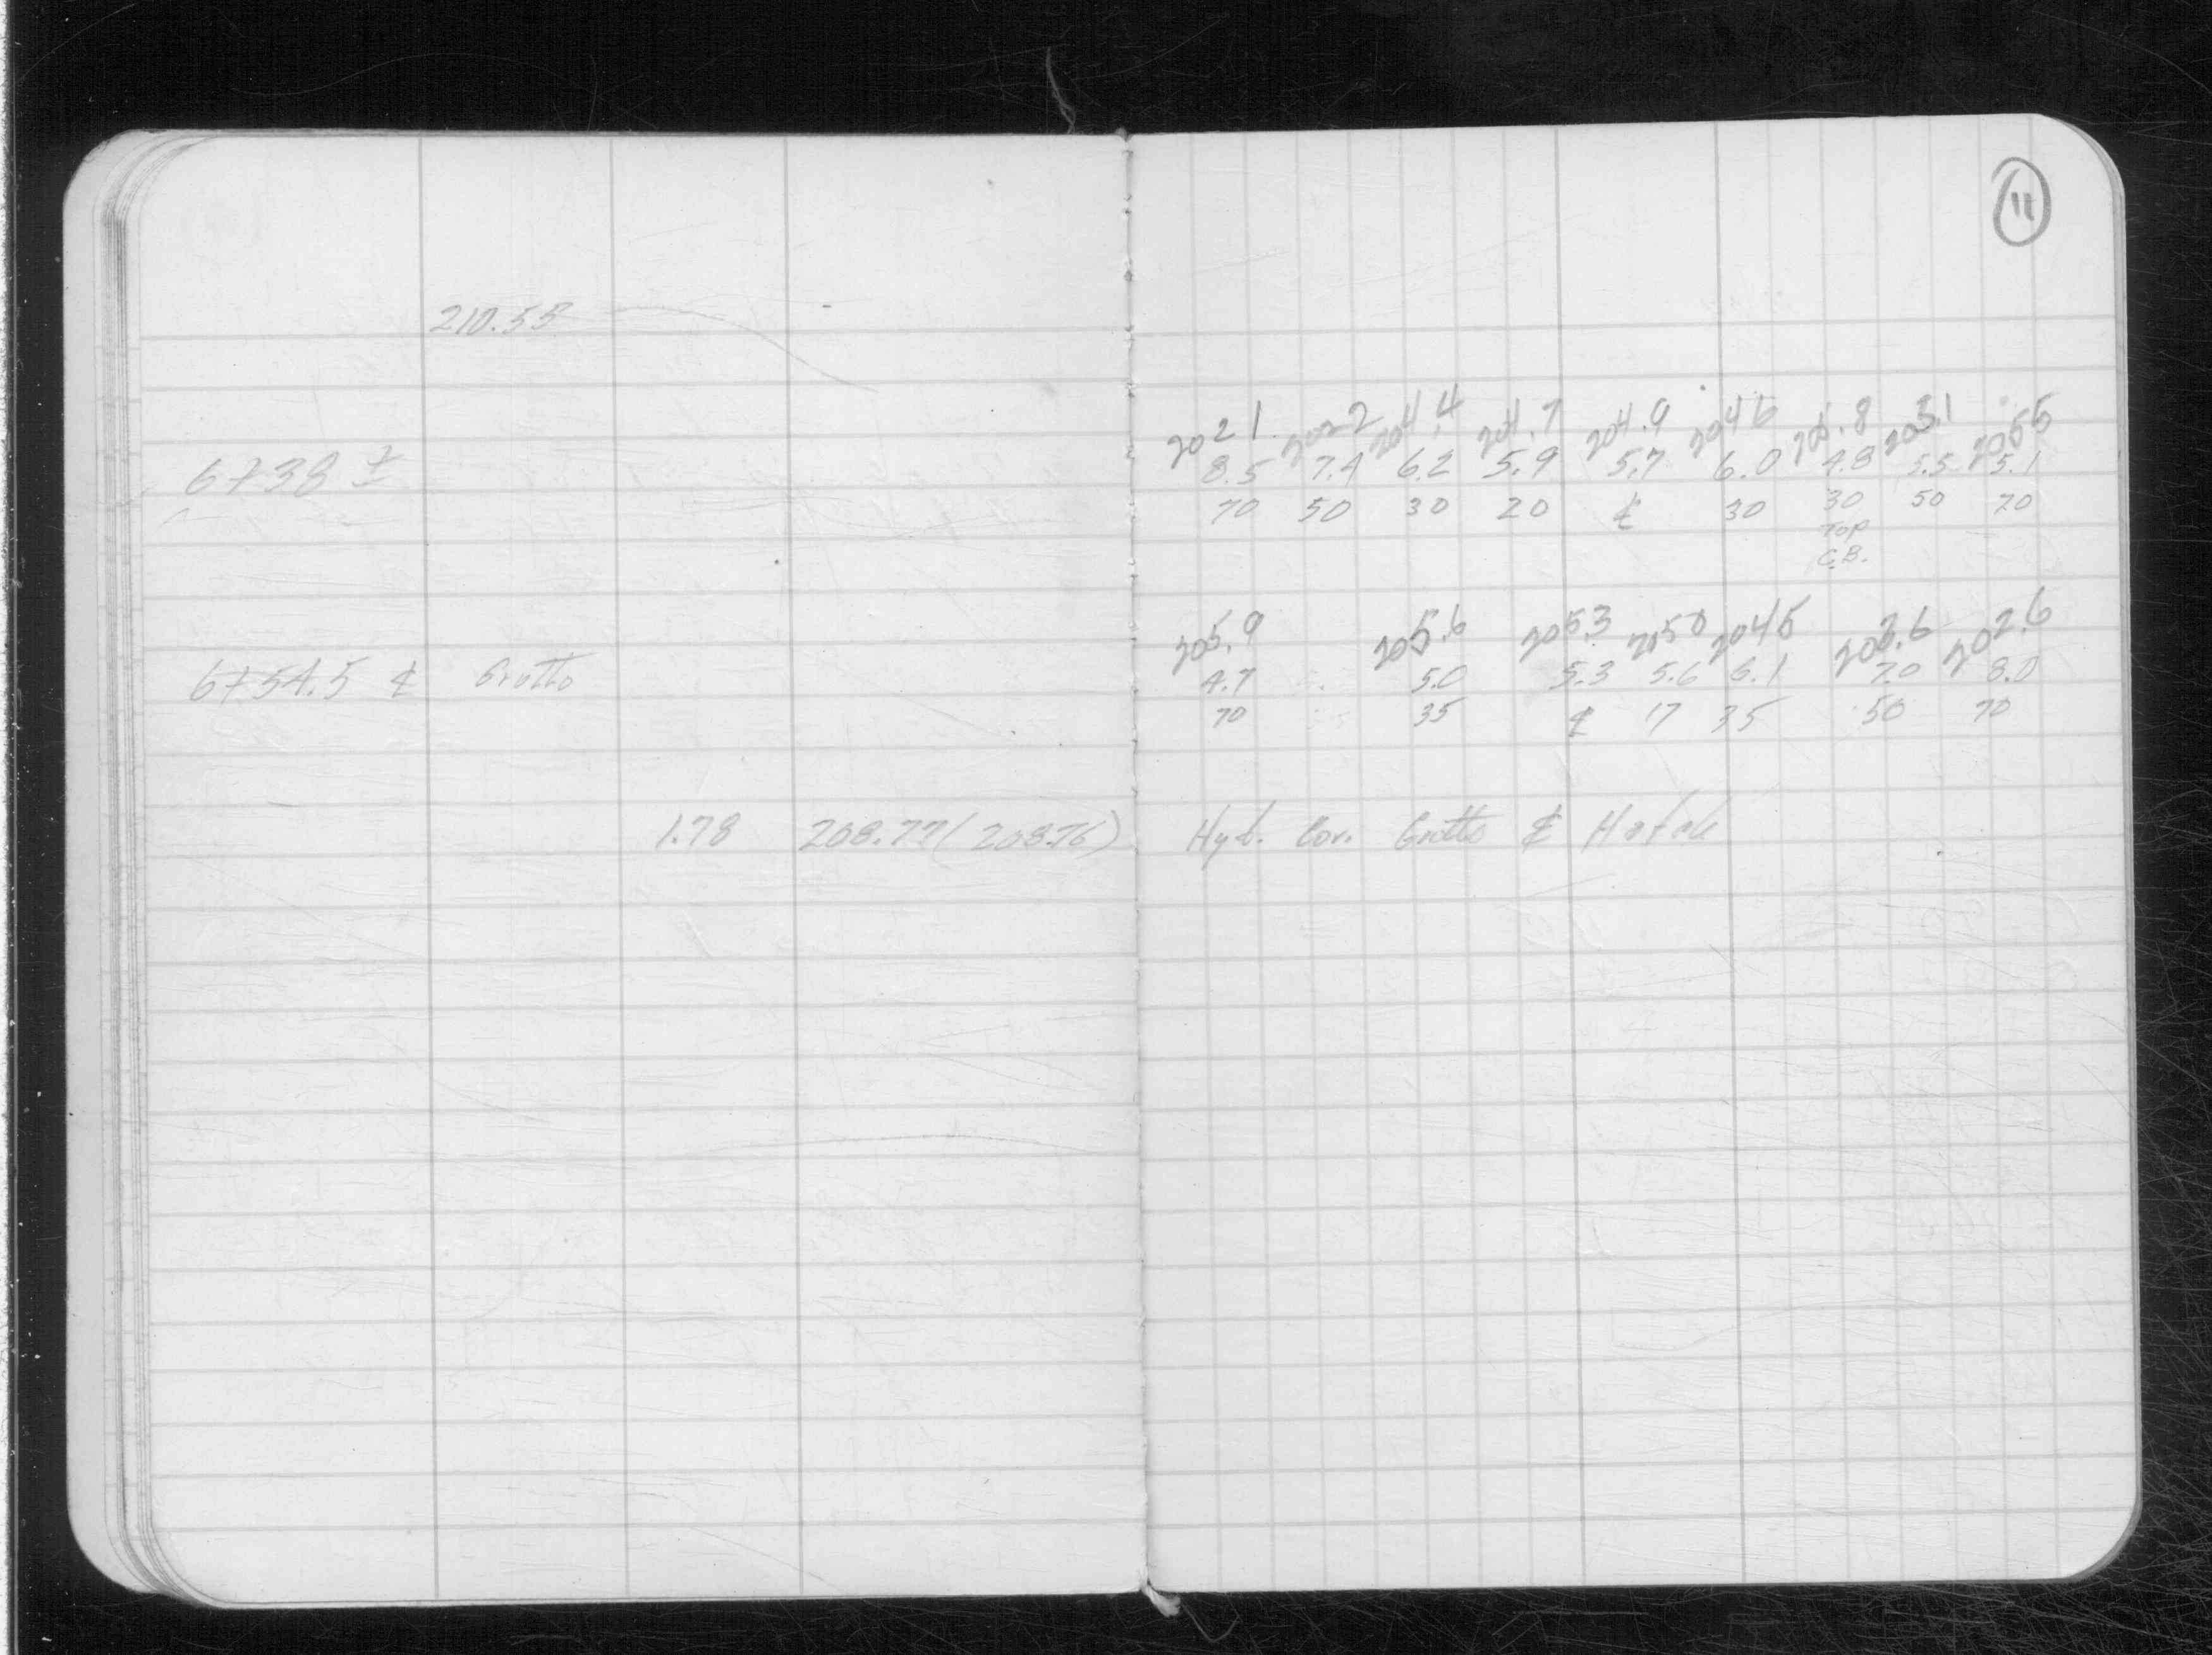 11
210.55
202.1 202.2 204.4 204.7 204.9 204.6 205.8 203.1 205.5
6+38 ± 8.5 7.4 6.2 5.9 5.7 6.0 4.8 5.5 5.1
70 50 30 20 ℄ 30 30 50 70
TOP
C.B.
205.9 205.6 205.3 205.0 204.5 203.6 202.6
6+54.5 ℄ Grotto 4.7 5.0 5.3 5.6 6.1 7.0 8.0
70 35 ℄ 17 35 50 70
1.78 208.77 (208.76) Hyd. Cor. Grotto & Hatch